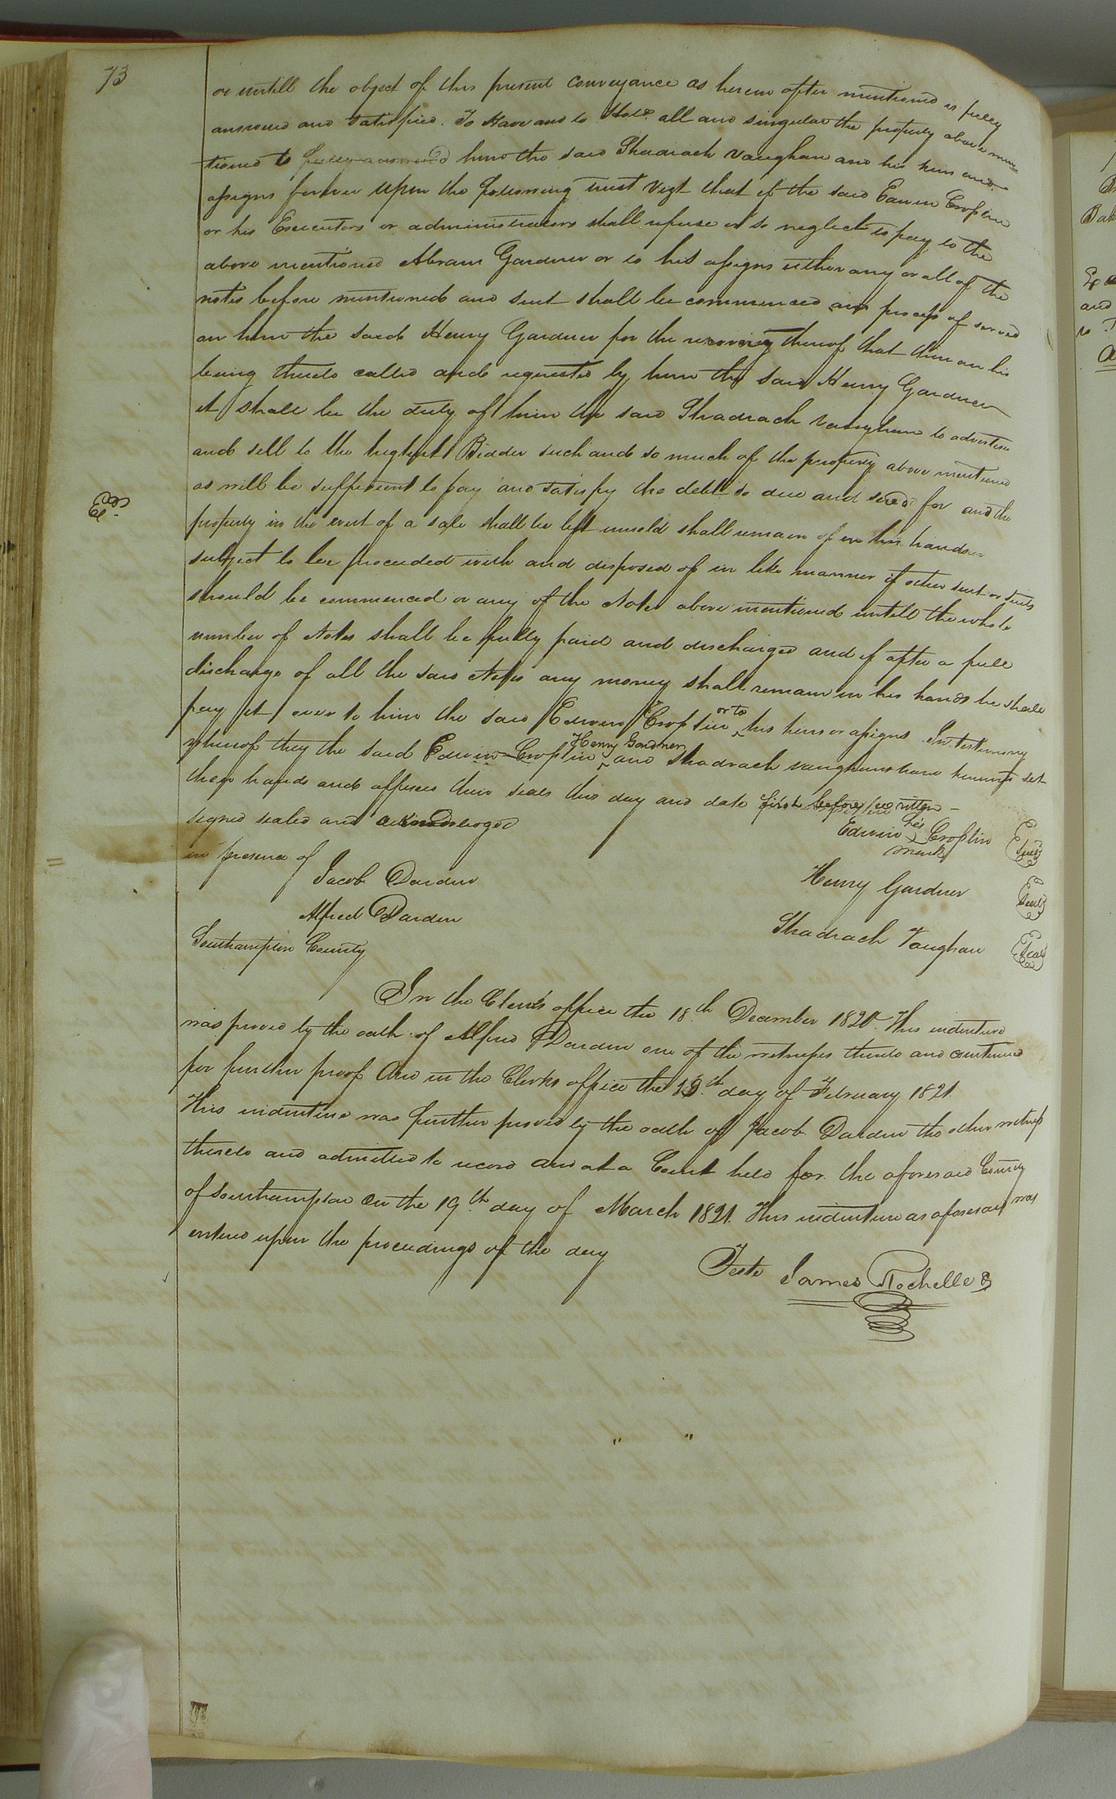 73
or untill the object of this present conveyance as herein after mentioned is fully
answered and satisfied. To Have and to Hold all and singular the property above men
tioned to him the said Shadrach Vaughan and his heirs and
assigns forever upon the following trust Vizt that if the said Edwin Croplin
or his Executors or administrators shall refuse or so neglect to pay to the
above mentioned Abram Gardner or to his assigns either any or all of the
notes before mentioned and suit shall be commenced and process of served
on him the said Henry Gardner for the recovery thereof that then on his
being thereto called and requested by him the said Henry Gardner
it shall be the duty of him the said Shadrach Vaughan to advertise
and sell to the highest Bidder such and so much of the property above mentioned
as will be sufficient to pay and satisfy the debt so due and sued for and the
property in the event of a sale shall be left unsold shall remain in his hands
subject to be proceeded with and disposed of in like manner if other suit or suits
should be commenced or any of the Notes above mentioned untill the whole
number of Notes shall be fully paid and discharged and if after a full
discharge of all the said Notes any money shall remain in his hands he shall
pay it over to him the said Edwin Croplin or to his heirs or assigns In testimony
whereof they the said Edwin Croplin Henry Gardner and Shadrach Vaughan have hereunto set
their hands and affixed their seals this day and date first before written
signed sealed and acknowledged
in presence of
Edwin his Croplin Seal
mark
Jacob Darden
Henry Gardner Seal
Alfred Darden
Shadrach Vaughan Seal
Southampton County
In the Clerk's office the 18th December 1820. This indenture
was proved by the oath of Alfred Darden one of the witnesses thereto and continued
for further proof And in the Clerks office the 19th day of February 1821
This indenture was further proved by the oath of Jacob Darden the other witness
thereto and admitted to record and at a Court held for the aforesaid County
of Southampton On the 19th day of March 1821 This indenture as aforesaid was
entered upon the proceedings of the day
Teste James Rochelle